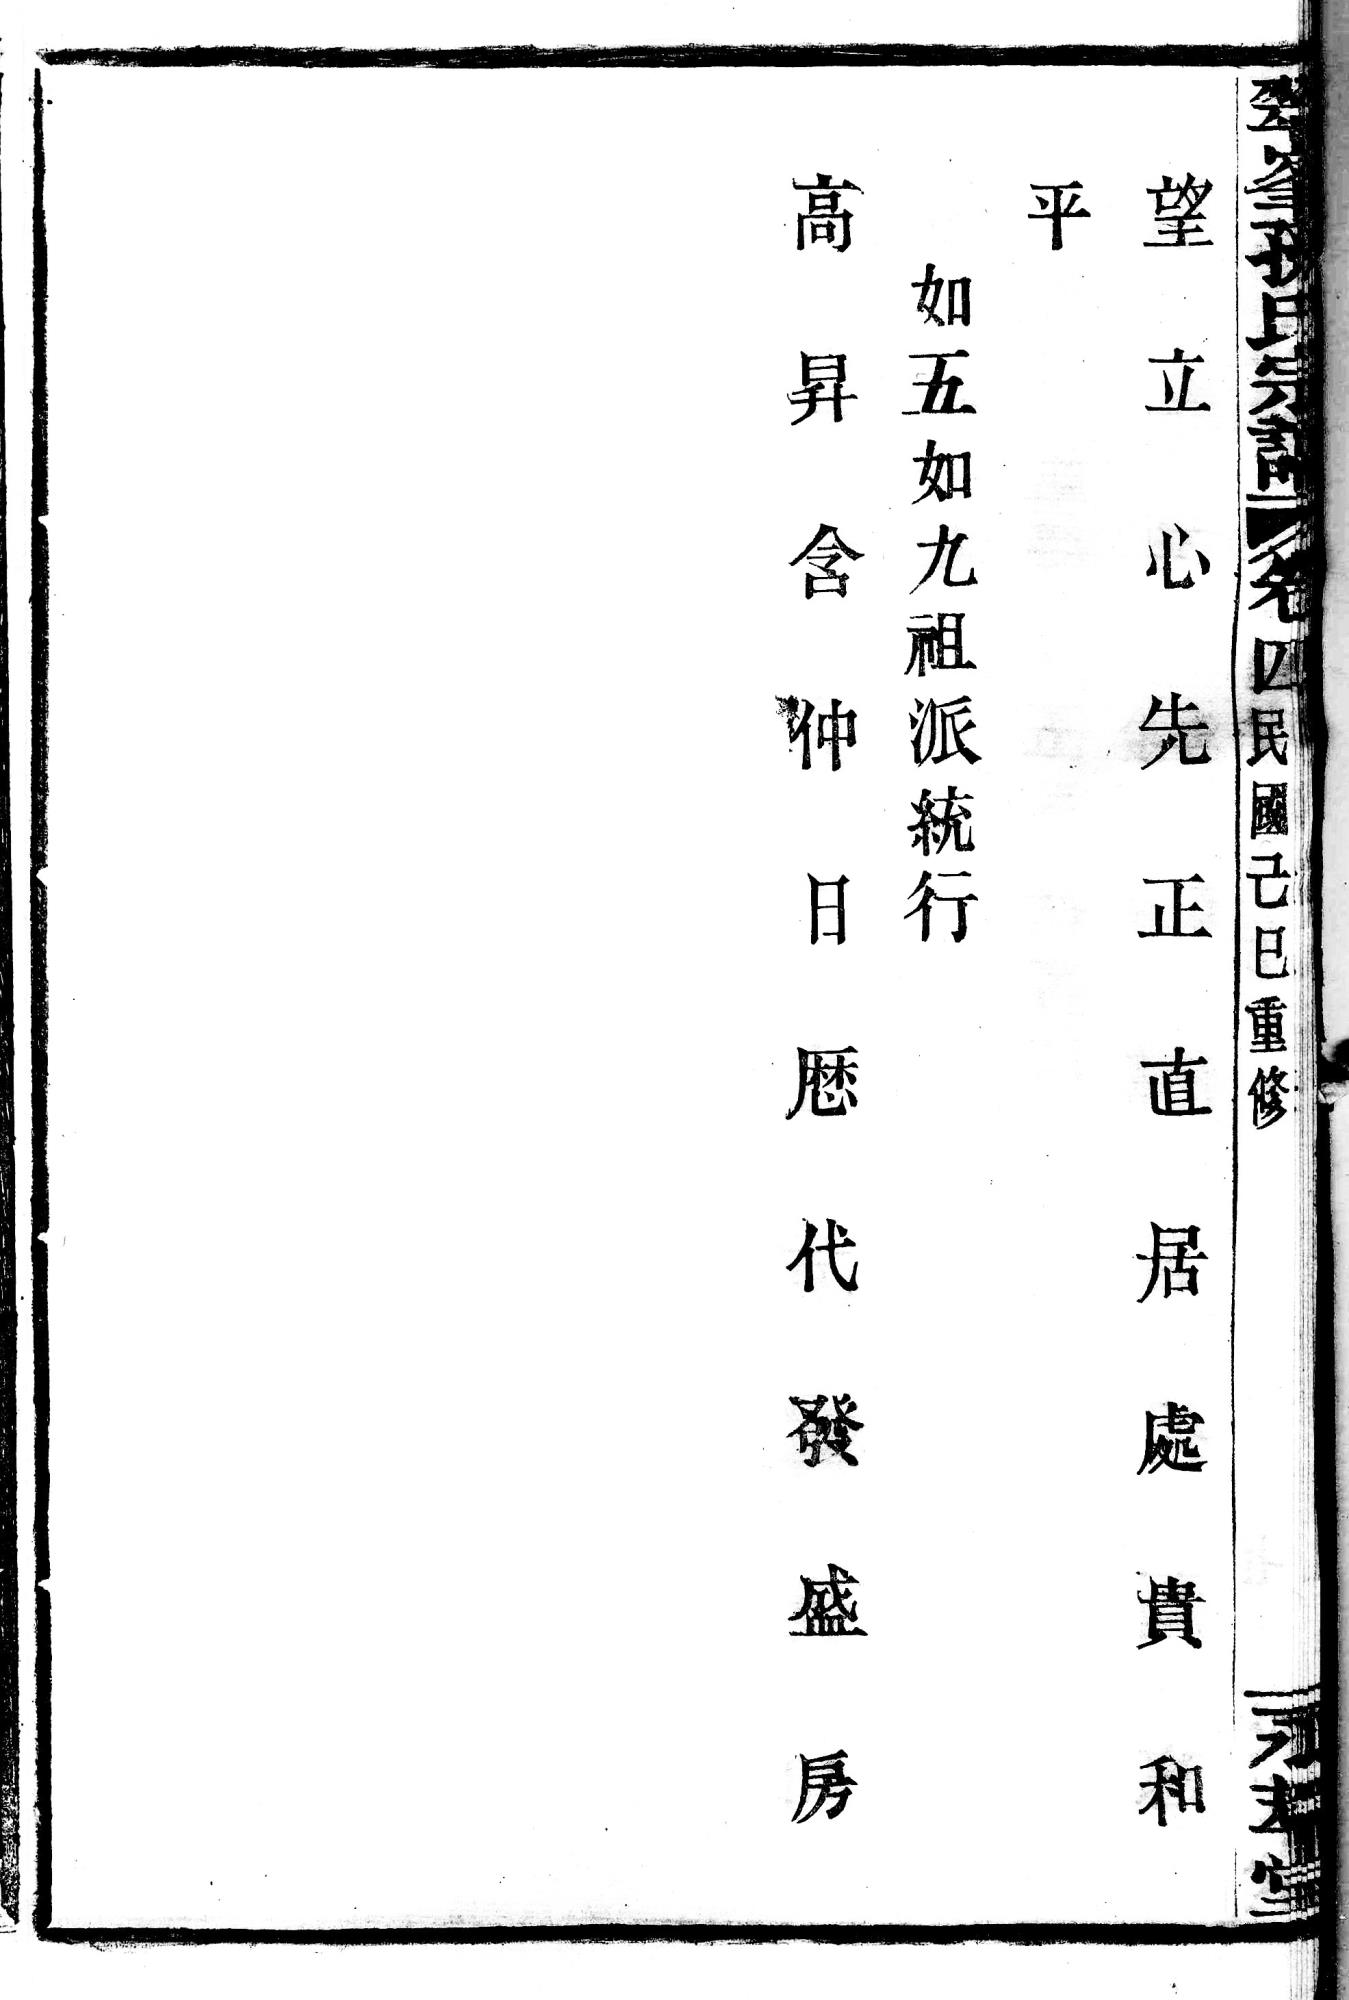 氏宗譜 卷四民國己巳重修
堂
望立心先正直居處貴和
平
如五如九祖派統行
高昇含仲日歷代發盛房